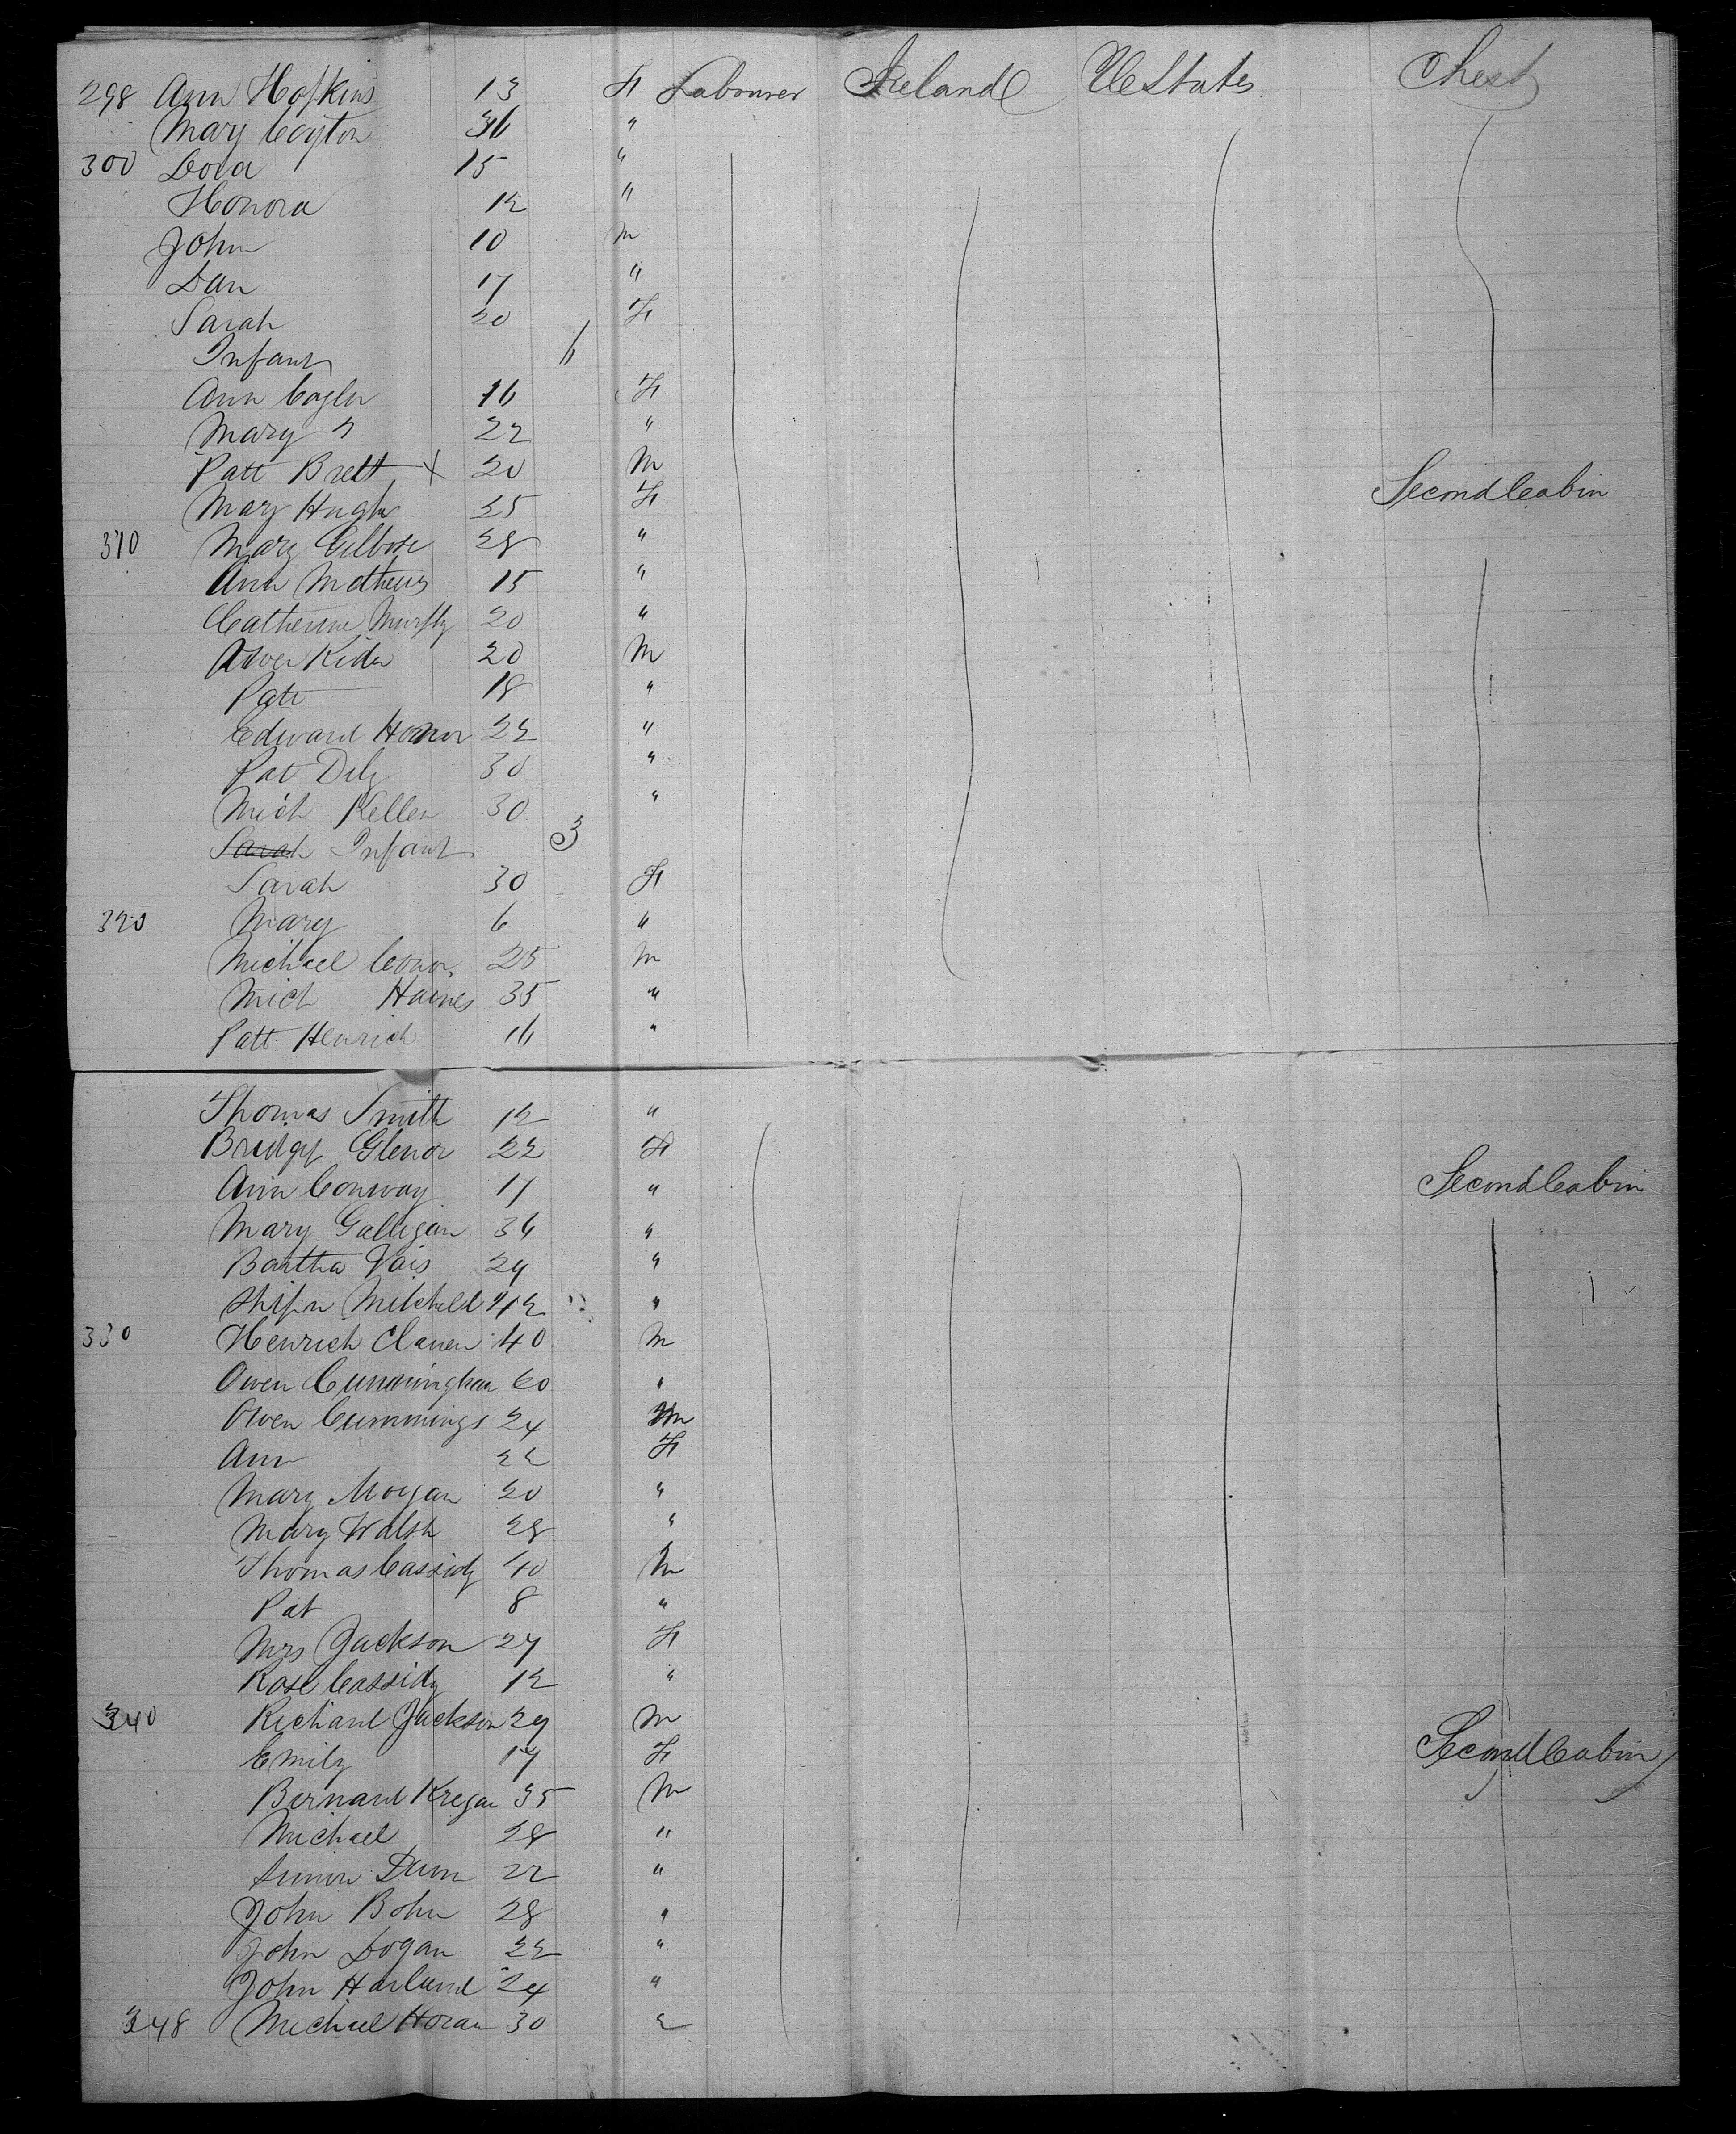 298 Ann Hopkins 13 F Labourer Ireland UStates Chest
Mary Coyton 36 "
300 Dora 15 "
Honora 12 "
John 10 M
Dan 17 "
Sarah 20 F
Infant 6
Ann 16 F
Mary " 22 "
Patt Brett X 20 M
Mary Hugh 25 F Second Cabin
310 Mary 28 "
Ann Mathews 15 "
Catherine Murphy 20 "
Kider 20 M
Patt 18 "
Edward 22 "
Pat 30 "
Mich Kellen 30 "
Sarah Infant 3
Sarah 30 F
320 Mary 6 "
Michael Conor 25 M
Mich Haines 35 "
Patt Henrich 16 "
Thomas Smith 12 "
Bridget Glenor 22 F
Ann Conway 17 " Second Cabin
Mary Galligan 36 "
Bartha Vais 24 "
Mitchell 42 "
330 Henrich Clauen 40 M
Owen Cunningham 60 "
Owen Cummings 24 M
Ann 22 F
Mary Mogan 20 "
Mary Walsh 28 "
Thomas Cassidy 40 M
Pat 8 "
Mrs Jackson 27 F
Rose Cassidy 12 "
340 Richard Jackson 29 M
Emily 17 F Second Cabin
Bernard Kregan 35 M
Michael 28 "
Dunn 22 "
John Bohn 28 "
John Dogan 22 "
John Harland 24 "
348 Michael Horan 30 "